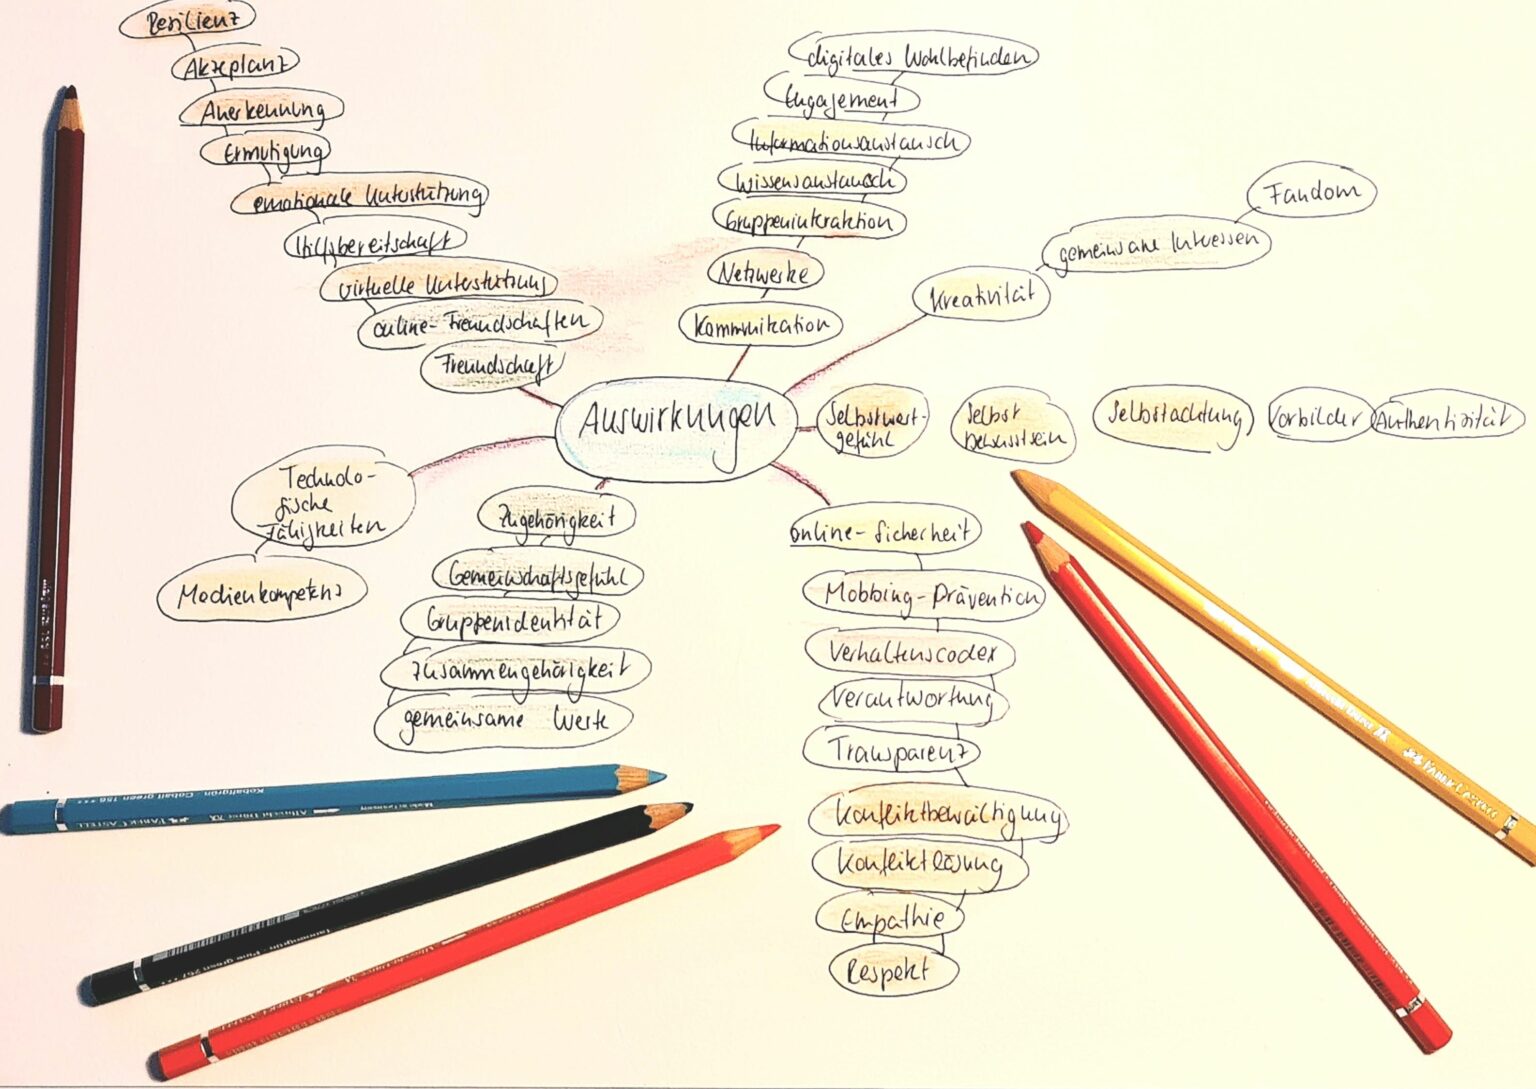 Resilienz
Akzeptanz
Anerkennung
Ermutigung
emotionale Unterstützung
Hilfsbereitschaft
virtuelle Unterstützung
online-Freundschaften
Freundschaft
digitales Wohlbefinden
Engagement
Informationsaustausch
Wissensaustausch
Gruppeninteraktion
Netzwerke
Kommunikation
Fandom
gemeinsame Interessen
Kreativität
Auswirkungen
Selbstwert-
gefühl
Selbst
bewusstsein
Selbstachtung
Vorbilder
Authentizität
Technolo-
gische
Fähigkeiten
Medienkompetenz
Zugehörigkeit
Gemeinschaftsgefühl
Gruppenidentität
Zusammengehörigkeit
gemeinsame Werte
online-Sicherheit
Mobbing-Prävention
Verhaltenscodex
Verantwortung
Transparenz
Konfliktbewältigung
Konfliktlösung
Empathie
Respekt
Kobaltgrün - Cobalt green 156 ***
FABER-CASTELL
Made in Germany
Pine green 267 ***
FABER-CASTELL